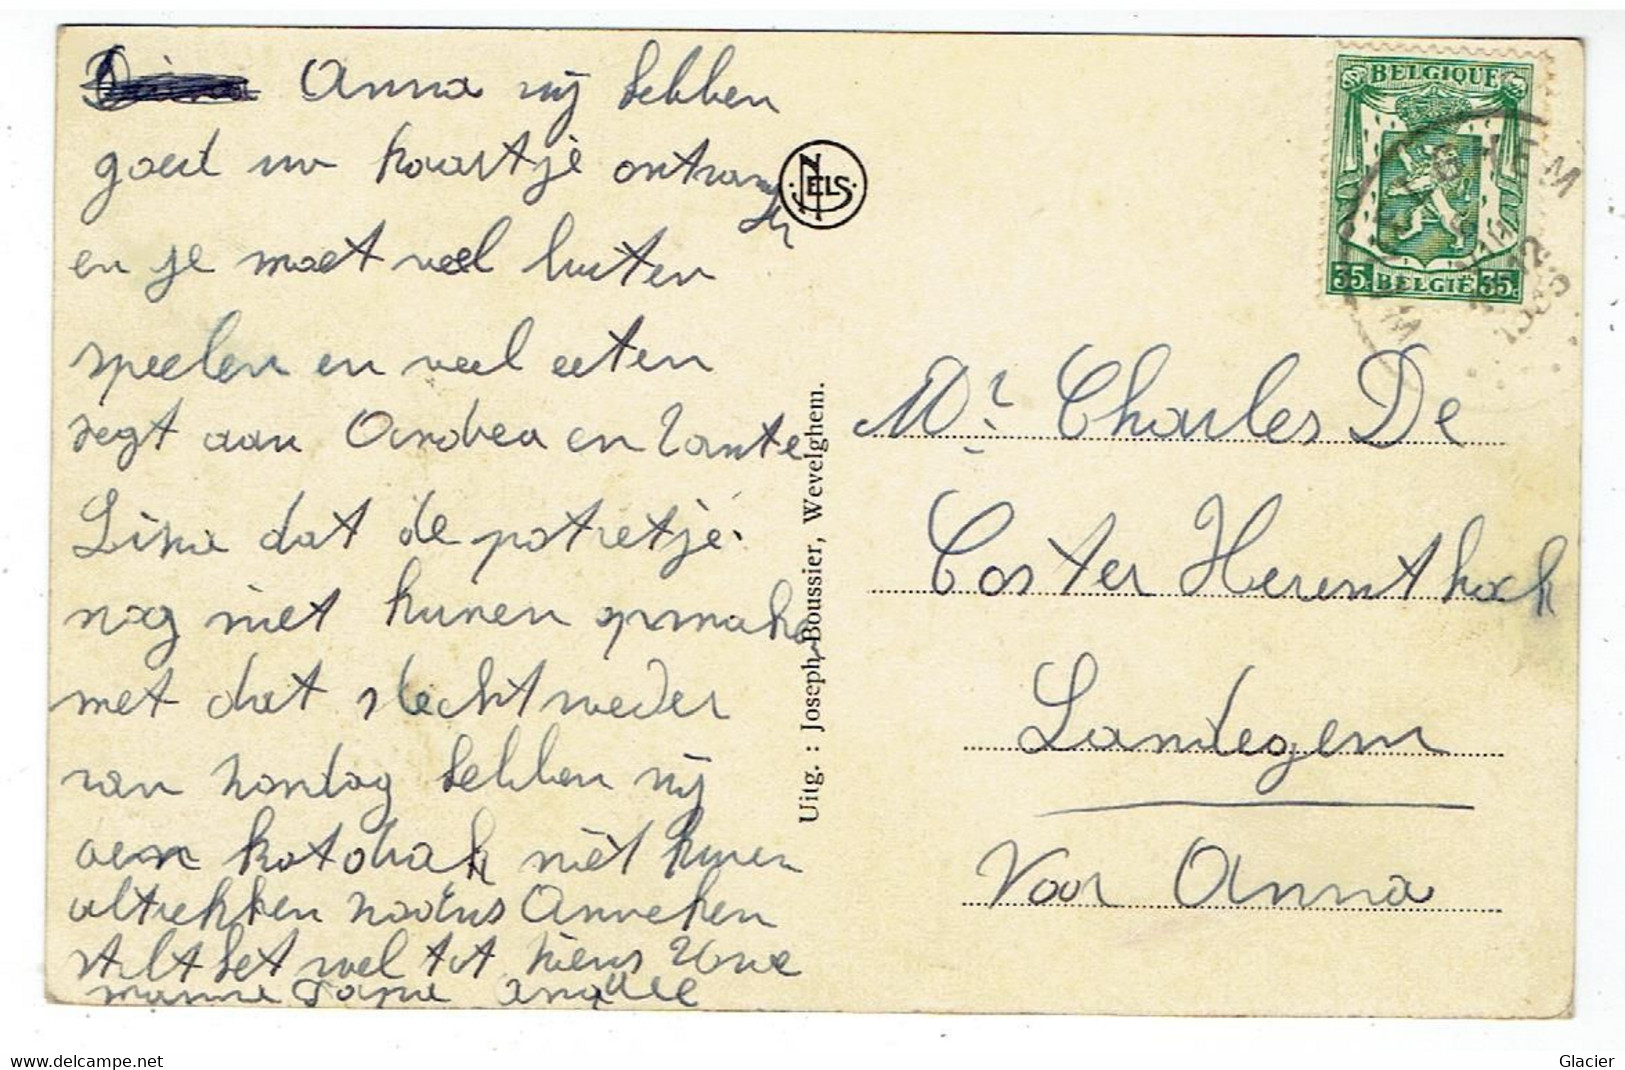 Anna wij hebben
goed uw kaartje ontvangen
en je moet veel buiten
speelen en veel eeten
zegt aan Andrea en Tante
Lisa dat de potretje
nog niet kunen opmake
met dat slecht weder
van zondag hebben wij
een kotodrak niet kunen
altrekken Anneken
het wel tot ziens Uwe
mamma Papa
NELS
Uitg. : Joseph Boussier, Wevelghem.
BELGIQUE
35 BELGIË 35c
Mr Charles De
Coster Herenthoek
Landegem
Voor Anna
Glacier
www.delcampe.net